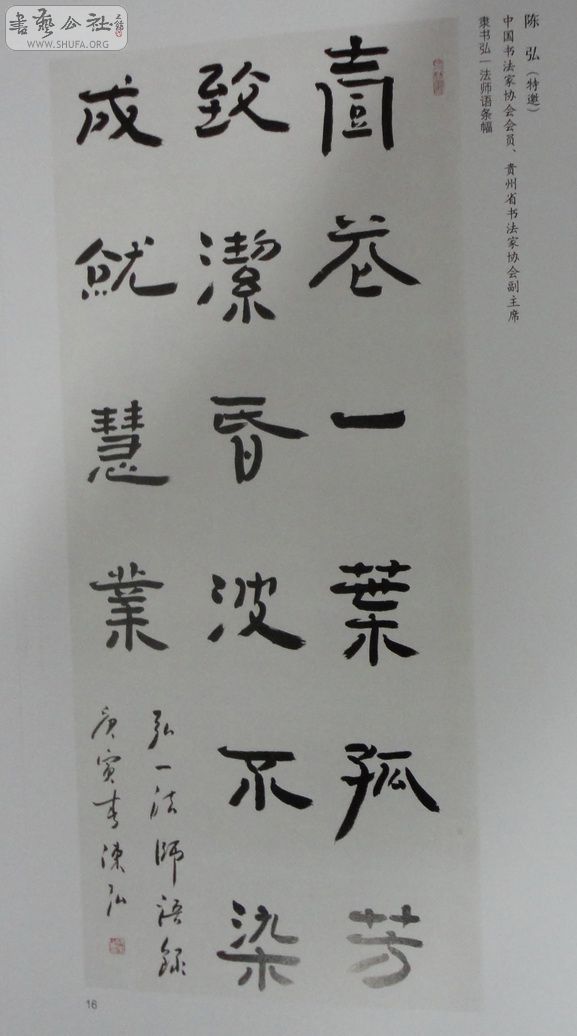 書藝公社
WWW.SHUFA.ORG
陈 弘（特邀）
中国书法家协会会员、贵州省书法家协会副主席
隶书弘一法师语条幅
壹花一葉孤芳
致潔昏波不染
成就慧業
弘一法師語録
庚寅春陳弘
16